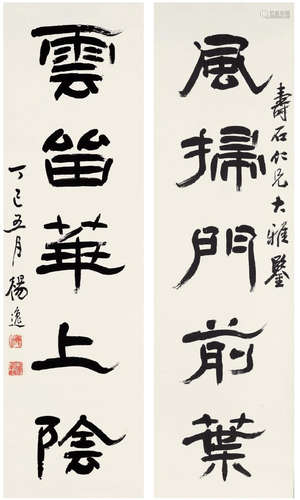 壽石仁兄大雅鑒
風掃門前葉
雲留華上陰
丁巳五月 楊逸